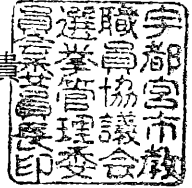 宇都宮市教
職員協議会
選挙管理委
員会委員長印
書